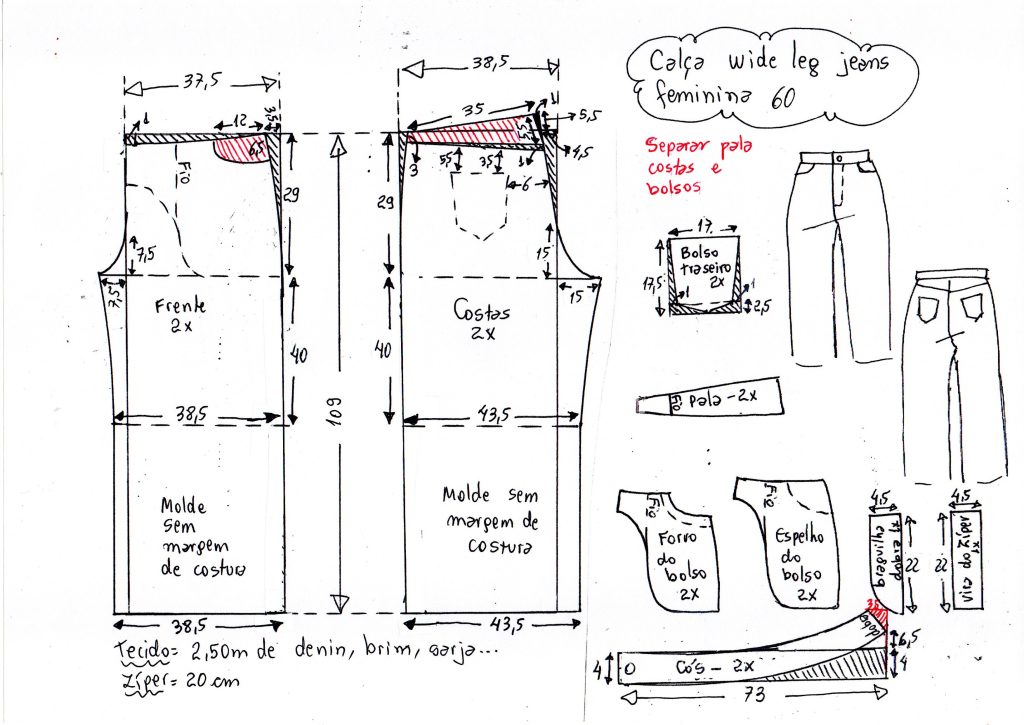 Calça wide leg jeans
feminina 60
37,5
38,5
35
1
12
3,5
6,5
Fio
29
7,5
7,5
Frente
2x
40
38,5
Molde
sem
margem
de costura
38,5
109
1
5,5
5,5
4,5
3
5,5
3,5
1
6
29
15
15
Costas
2x
40
43,5
Molde sem
margem de
costura
43,5
Separar pala
costas e
bolsos
17
Bolso
traseiro
2x
17,5
1
1
2,5
Fio
pala - 2x
Fio
Forro
do
bolso
2x
Fio
Espelho
do
bolso
2x
4,5
braguilha
dobra x1
22
4,5
vira do zíper
x1
22
3,5
dobra
6,5
4
Cós - 2x
4
73
Tecido= 2,50m de denin, brim, sarja...
zíper= 20 cm